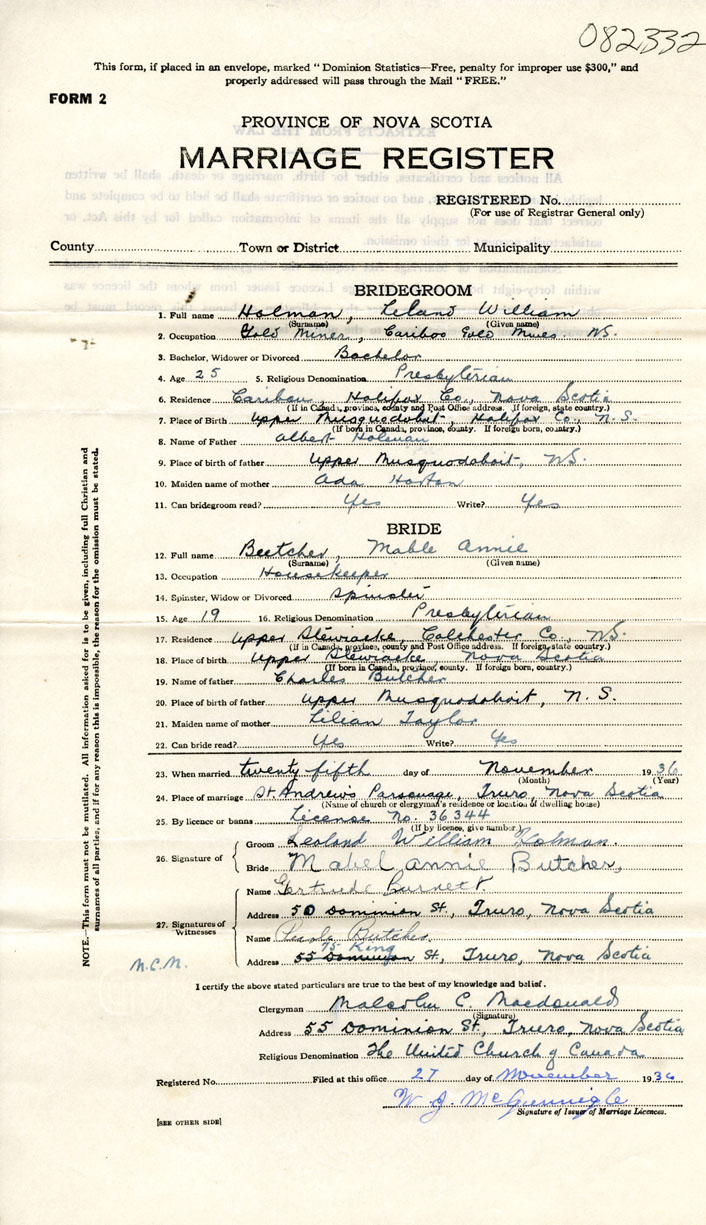 082332
This form, if placed in an envelope, marked "Dominion Statistics—Free, penalty for improper use $300," and
properly addressed will pass through the Mail "FREE."
FORM 2
PROVINCE OF NOVA SCOTIA
MARRIAGE REGISTER
REGISTERED No.
(For use of Registrar General only)
County Town or District Municipality
BRIDEGROOM
1. Full name Holman, Leland William
(Surname) (Given name)
2. Occupation Gold Miner, Cariboo Gold Mines. NS.
3. Bachelor, Widower or Divorced Bachelor
4. Age 25 5. Religious Denomination Presbyterian
6. Residence Caribou, Halifax Co., Nova Scotia
(If in Canada, province, county and Post Office address. If foreign, state country.)
7. Place of Birth Upper Musquodoboit, Halifax Co., N.S.
(If born in Canada, province, county. If foreign born, country.)
8. Name of Father Albert Holman
9. Place of birth of father Upper Musquodoboit, NS.
10. Maiden name of mother Ada Horton
11. Can bridegroom read? Yes Write? Yes
BRIDE
12. Full name Beetcher, Mable Annie
(Surname) (Given name)
13. Occupation Housekeeper
14. Spinster, Widow or Divorced Spinster
15. Age 19 16. Religious Denomination Presbyterian
17. Residence Upper Stewiacke, Colchester Co., NS.
(If in Canada, province, county and Post Office address. If foreign, state country.)
18. Place of birth Upper Stewiacke Nova Scotia
(If born in Canada, province, county. If foreign born, country.)
19. Name of father Charles Butcher
20. Place of birth of father Upper Musquodoboit, N.S.
21. Maiden name of mother Lilian Taylor
22. Can bride read? Yes Write? Yes
23. When married twenty fifth day of November 1936
(Month) (Year)
24. Place of marriage St. Andrews Parsonage, Truro, Nova Scotia
(Name of church or clergyman's residence or location of dwelling house)
25. By licence or banns License No. 36344
(If by licence, give number)
26. Signature of
Groom Leoland William Holman.
Bride Mabel Annie Butcher,
27. Signatures of Witnesses
Name Gertrude Burnett
Address 50 Dominion St., Truro, Nova Scotia
Name Butcher
75 King
Address 55 Dominion St., Truro, Nova Scotia
M.C.M.
I certify the above stated particulars are true to the best of my knowledge and belief.
Clergyman Malcolm C. Macdonald
(Signature)
Address 55 Dominion St., Truro, Nova Scotia
Religious Denomination The United Church of Canada
Registered No. Filed at this office 27 day of November 1936
W. J. McGunnigle
Signature of Issuer of Marriage Licences.
[SEE OTHER SIDE]
NOTE.—This form must not be mutilated. All information asked for is to be given, including full Christian and
surnames of all parties, and if for any reason this is impossible, the reason for the omission must be stated.